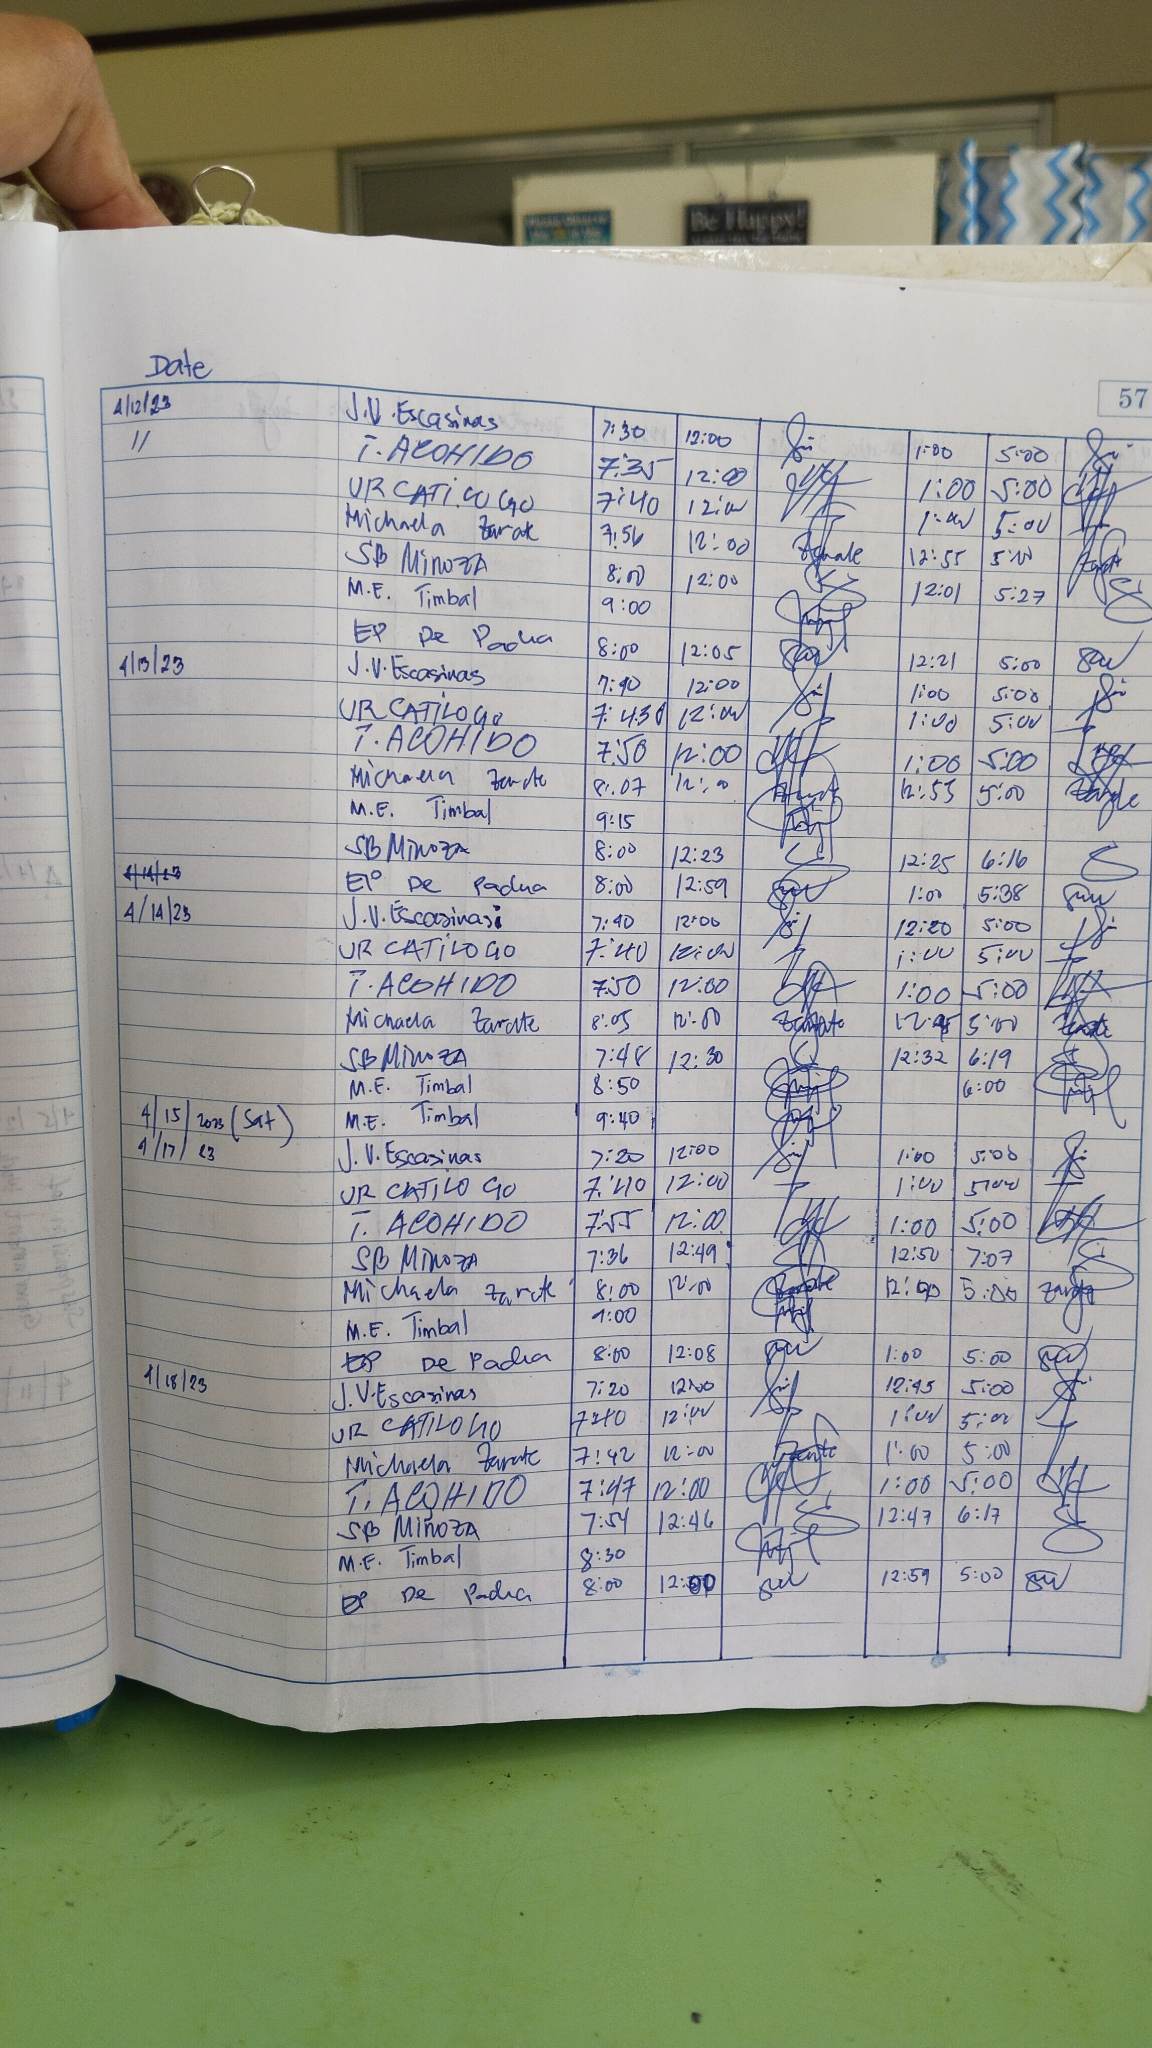 Be Happy!
Date
57
4/12/23 J.V. Escasinas 7:30 12:00 1:00 5:00
" T. ACOHIDO 7:35 12:00 1:00 5:00
UR CATILOGO 7:40 12:00 1:00 5:00
Michaela Zarate 7:56 12:00 Zarate 12:55 5:00
SB MINOZA 8:00 12:00 12:01 5:27
M.E. Timbal 9:00
EP De Padua 8:00 12:05 12:21 5:00
4/13/23 J.V. Escasinas 7:40 12:00 1:00 5:00
UR CATILOGO 12:00 1:00 5:00
T. ACOHIDO 7:50 12:00 1:00 5:00
Michaela Zarate 8:07 12:00 12:55 5:00 Zarate
M.E. Timbal 9:15
SB MINOZA 8:00 12:23 12:25 6:16
4/14/23 EP De Padua 8:00 12:59 1:00 5:38
4/14/23 J.V. Escasinas 7:40 12:00 12:20 5:00
UR CATILOGO 7:40 12:00 1:00 5:00
T. ACOHIDO 7:50 12:00 1:00 5:00
Michaela Zarate 8:05 12:00 Zarate 5:00 Zarate
SB MINOZA 7:48 12:30 12:32 6:19
M.E. Timbal 8:50 6:00
4/15/2023 (Sat) M.E. Timbal 9:40
4/17/23 J.V. Escasinas 7:20 12:00 1:00 5:00
UR CATILOGO 7:40 12:00 1:00 5:00
T. ACOHIDO 7:55 12:00 1:00 5:00
SB MINOZA 7:36 12:49 12:50 7:07
Michaela Zarate 8:00 12:00 Zarate 5:00 Zarate
M.E. Timbal 9:00
EP De Padua 8:00 12:08 1:00 5:00
4/18/23 J.V. Escasinas 7:20 12:00 12:45 5:00
UR CATILOGO 7:40 12:00 1:00 5:00
Michaela Zarate 7:42 12:00 Zarate 1:00 5:00
T. ACOHIDO 7:47 12:00 1:00 5:00
SB MIÑOZA 7:54 12:46 12:47 6:17
M.E. Timbal 8:30
EP De Padua 8:00 12:00 12:59 5:00